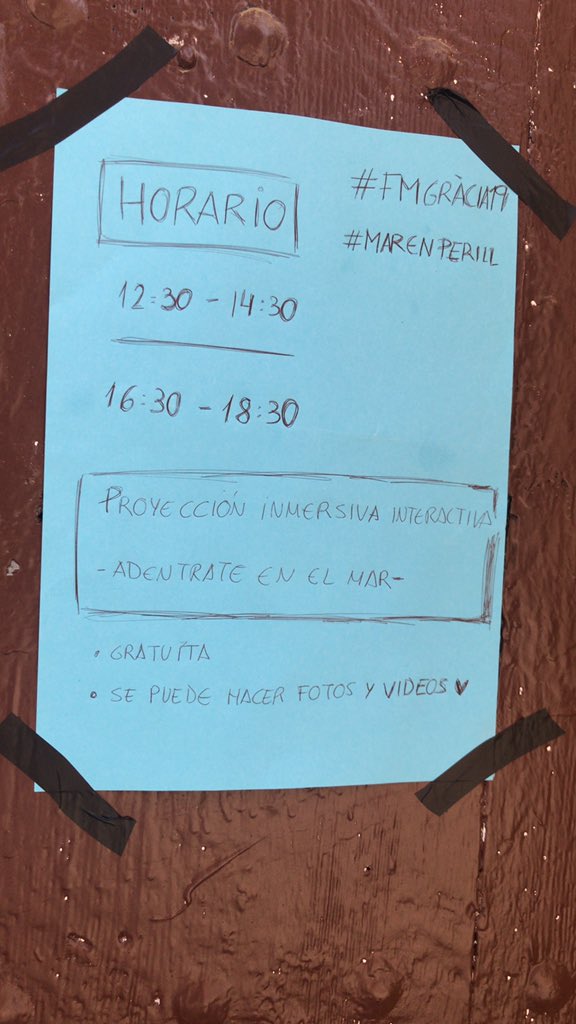 HORARIO
#FMGRÀCIA19
#MARENPERILL
12:30 - 14:30
16:30 - 18:30
PROYECCIÓN INMERSIVA INTERACTIVA
- ADENTRATE EN EL MAR -
• GRATUITA
• SE PUEDE HACER FOTOS Y VIDEOS ♥